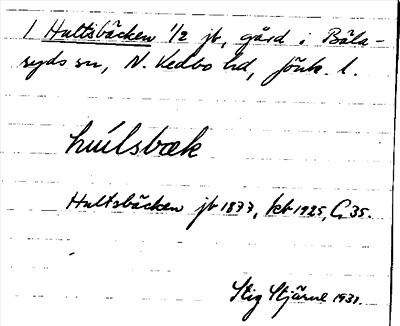 1 Hultsbäcken 1/2 jb, gård i Bäla-
ryds sn, N. Vedbo hd, Jönk. l.
Hultsbäcken jb 1877, kb 1925, C, 35.
Stig Stjärne 1931.